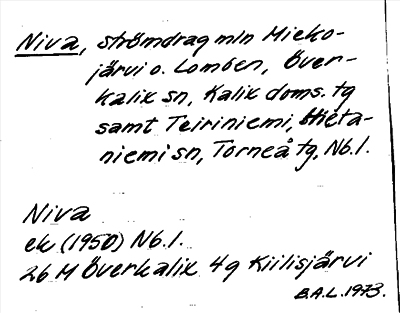 Niva, strömdrag mln Mieko-
järvi o. Lomben, Över-
kalix sn, Kalix doms. tg
samt Teiriniemi, Hieta-
niemi sn, Torneå tg, Nb. l.
Niva
ek (1950) Nb. l.
26 M Överkalix 4g Kiilisjärvi
B.A.L. 1973.